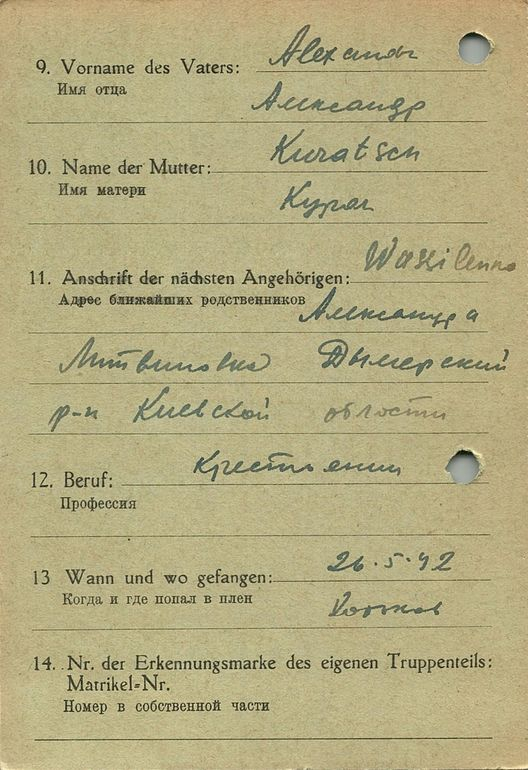 9. Vorname des Vaters: Alexandr
Имя отца
Александр
10. Name der Mutter: Kuratsch
Имя матери
Курач
11. Anschrift der nächsten Angehörigen: Wassilenko
Адрес ближайших родственников Александра
Литвиновка Дымерский
р-н Киевской области
12. Beruf:
Профессия
13 Wann und wo gefangen: 26.5.42
Когда и где попал в плен
14. Nr. der Erkennungsmarke des eigenen Truppenteils:
Matrikel-Nr.
Номер в собственной части